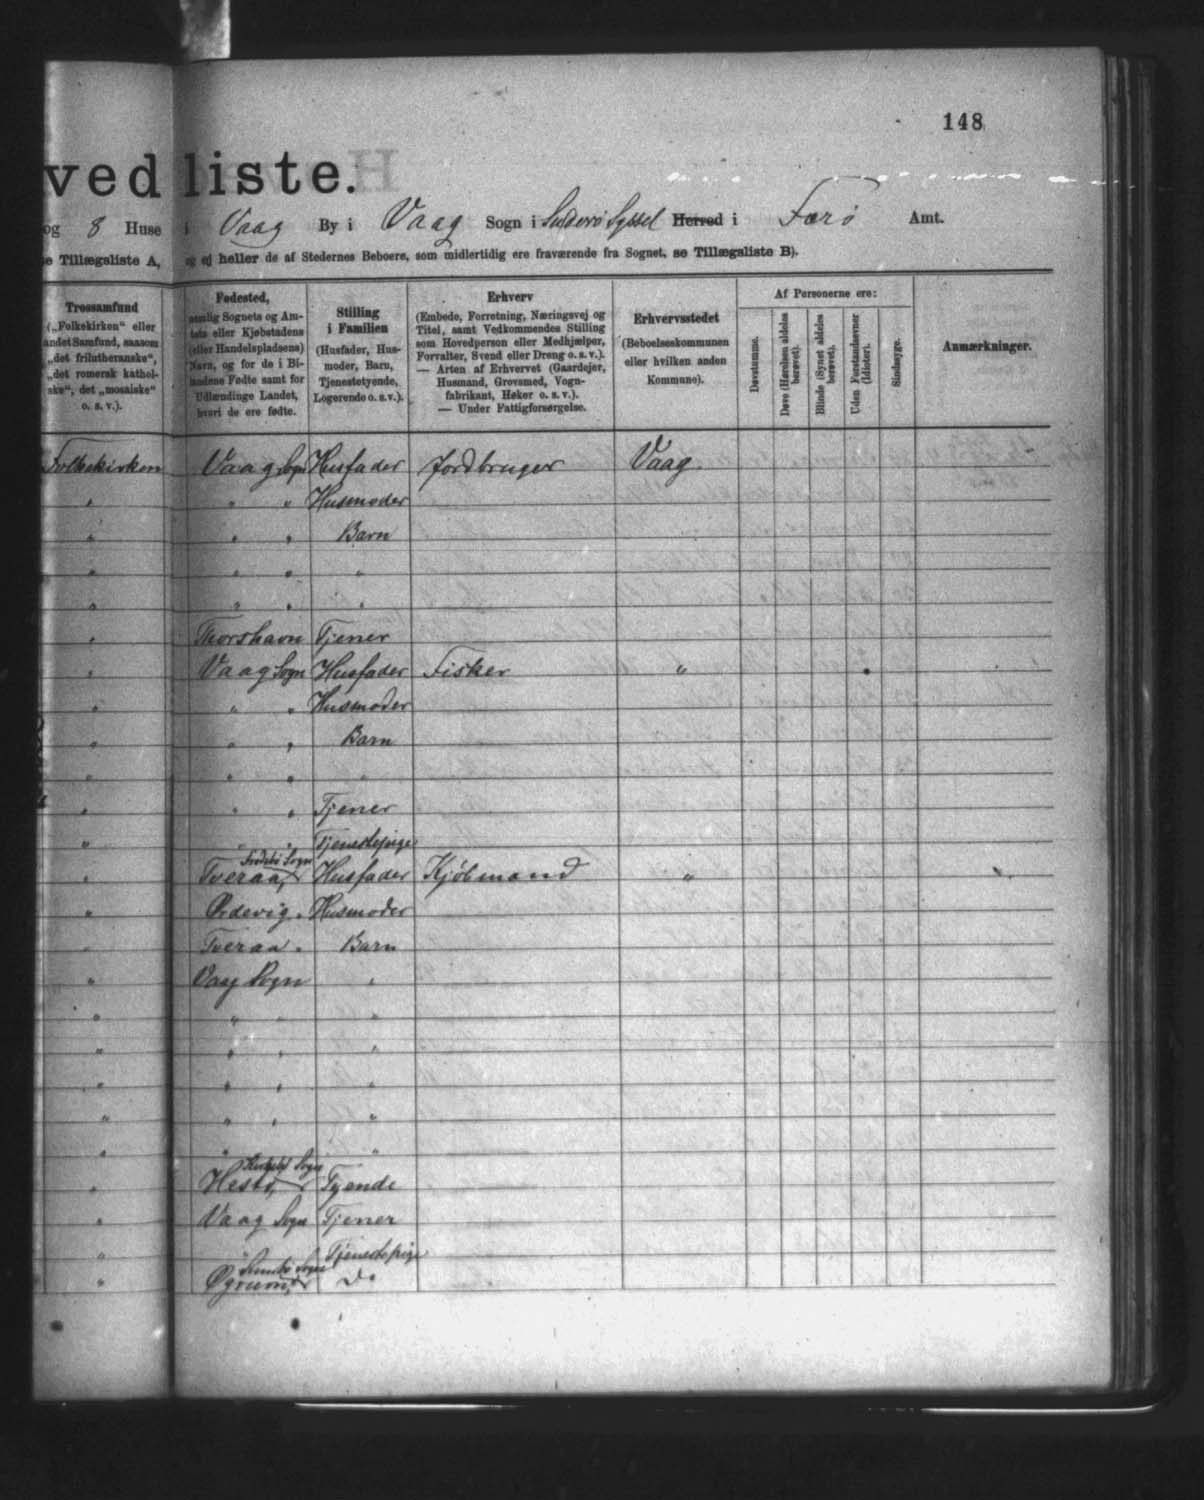 148
ved liste.
og 8 Huse i Vaag By i Vaag Sogn i Suderø Syssel Herred i Færø Amt.
e Tillægsliste A, og ej heller de af Stedernes Beboere, som midlertidig ere fraværende fra Sognet, se Tillægsliste B).
Trossamfund
(„Folkekirken“ eller
andet Samfund, saasom
„det frilutheranske“,
„det romersk kathol-
ske“, det „mosaiske“
o. s. v.).
Fødested,
nemlig Sognets og Am-
tets eller Kjøbstadens
(eller Handelspladsens)
Navn, og for de i Bi-
landene Fødte samt for
Udlændinge Landet,
hvori de ere fødte.
Stilling
i Familien
(Husfader, Hus-
moder, Barn,
Tjenestetyende,
Logerende o. s. v.).
Erhverv
(Embede, Forretning, Næringsvej og
Titel, samt Vedkommendes Stilling
som Hovedperson eller Medhjælper,
Forvalter, Svend eller Dreng o. s. v.).
— Arten af Erhvervet (Gaardejer,
Husmand, Grovsmed, Vogn-
fabrikant, Høker o. s. v.).
— Under Fattigforsørgelse.
Erhvervsstedet
(Beboelseskommunen
eller hvilken anden
Kommune).
Af Personerne ere:
Døvstumme.
Døve (Hørelsen aldeles
berøvet).
Blinde (Synet aldeles
berøvet).
Uden Forstandsevner
(Idioter).
Sindssyge.
Anmærkninger.
Folkekirken Vaag Sogn Husfader Jordbruger Vaag.
" " " Husmoder
" " " Barn
" " " "
" " " "
" Thorshavn Tjener
" Vaag Sogn Husfader Fisker "
" " " Husmoder
" " " Barn
" " " "
" " " Tjener
" " " Tjenestepige
Sogn
" Tveraa, Husfader Kjøbmand "
" Ördevig " Husmoder
" Tveraa " Barn
" Vaag Sogn "
" " " "
" " " "
" " " "
" " " "
" " "
Sogn
" Hestø, Tyende
" Vaag Sogn Tjener
" " Tjenestepige
Sumbø Sogn
" Do